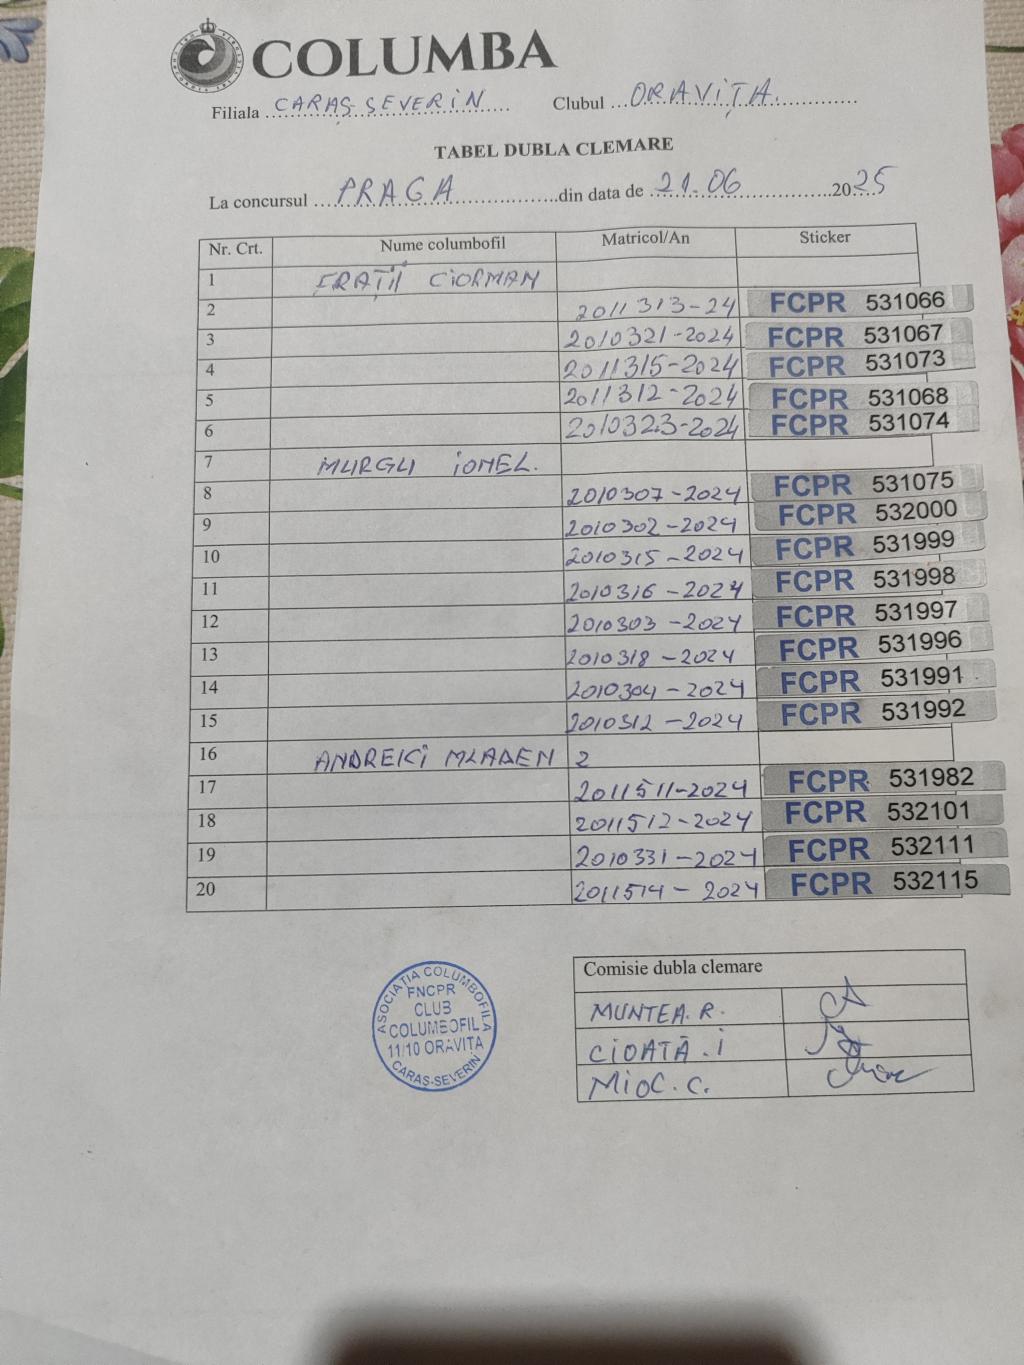 COLUMBA
Filiala CARAȘ-SEVERIN Clubul ORAVIȚA.
TABEL DUBLA CLEMARE
La concursul PRAGA din data de 21.06 2025
Nr. Crt. Nume columbofil Matricol/An Sticker
1 FRAȚII CIORMAN
2 2011313-24 FCPR 531066
3 2010321-2024 FCPR 531067
4 2011315-2024 FCPR 531073
5 2011312-2024 FCPR 531068
6 2010323-2024 FCPR 531074
7 MURGU IONEL.
8 2010307-2024 FCPR 531075
9 2010302-2024 FCPR 532000
10 2010315-2024 FCPR 531999
11 2010316-2024 FCPR 531998
12 2010303-2024 FCPR 531997
13 2010318-2024 FCPR 531996
14 2010304-2024 FCPR 531991
15 2010312-2024 FCPR 531992
16 ANDREICI MLADEN 2
17 2011511-2024 FCPR 531982
18 2011512-2024 FCPR 532101
19 2010331-2024 FCPR 532111
20 2011514-2024 FCPR 532115
Comisie dubla clemare
MUNTEA.R.
CIOATĂ.I
MIOC.C.
ASOCIAȚIA COLUMBOFILA
FNCPR
CLUB
COLUMBOFIL
11/10 ORAVITA
CARAȘ-SEVERIN